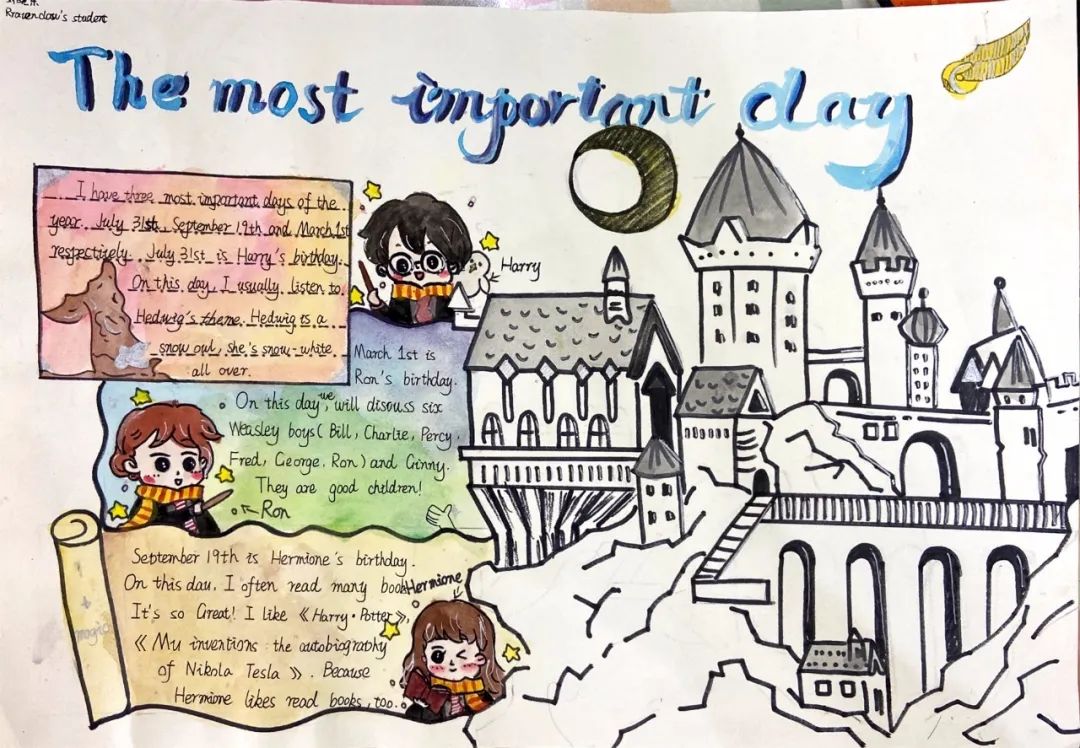 Rravenclaw's student
The most important day
I have three most important days of the
year. July 31st, September 19th and March 1st
respectively. July 31st is Harry's birthday.
On this day, I usually listen to
Hedwig's theme. Hedwig is a
snow owl, she's snow-white
all over.
Harry
March 1st is
Ron's birthday.
On this day, we will disouss six
Weasley boys( Bill, Charlie, Percy,
Fred, George, Ron) and Ginny.
They are good children!
Ron
September 19th is Hermione's birthday.
On this day, I often read many book
Hermione
It's so Great! I like 《Harry·Potter》,
《My inventions: the autobiography
of Nikola Tesla》. Because
Hermione likes read books, too.
magic